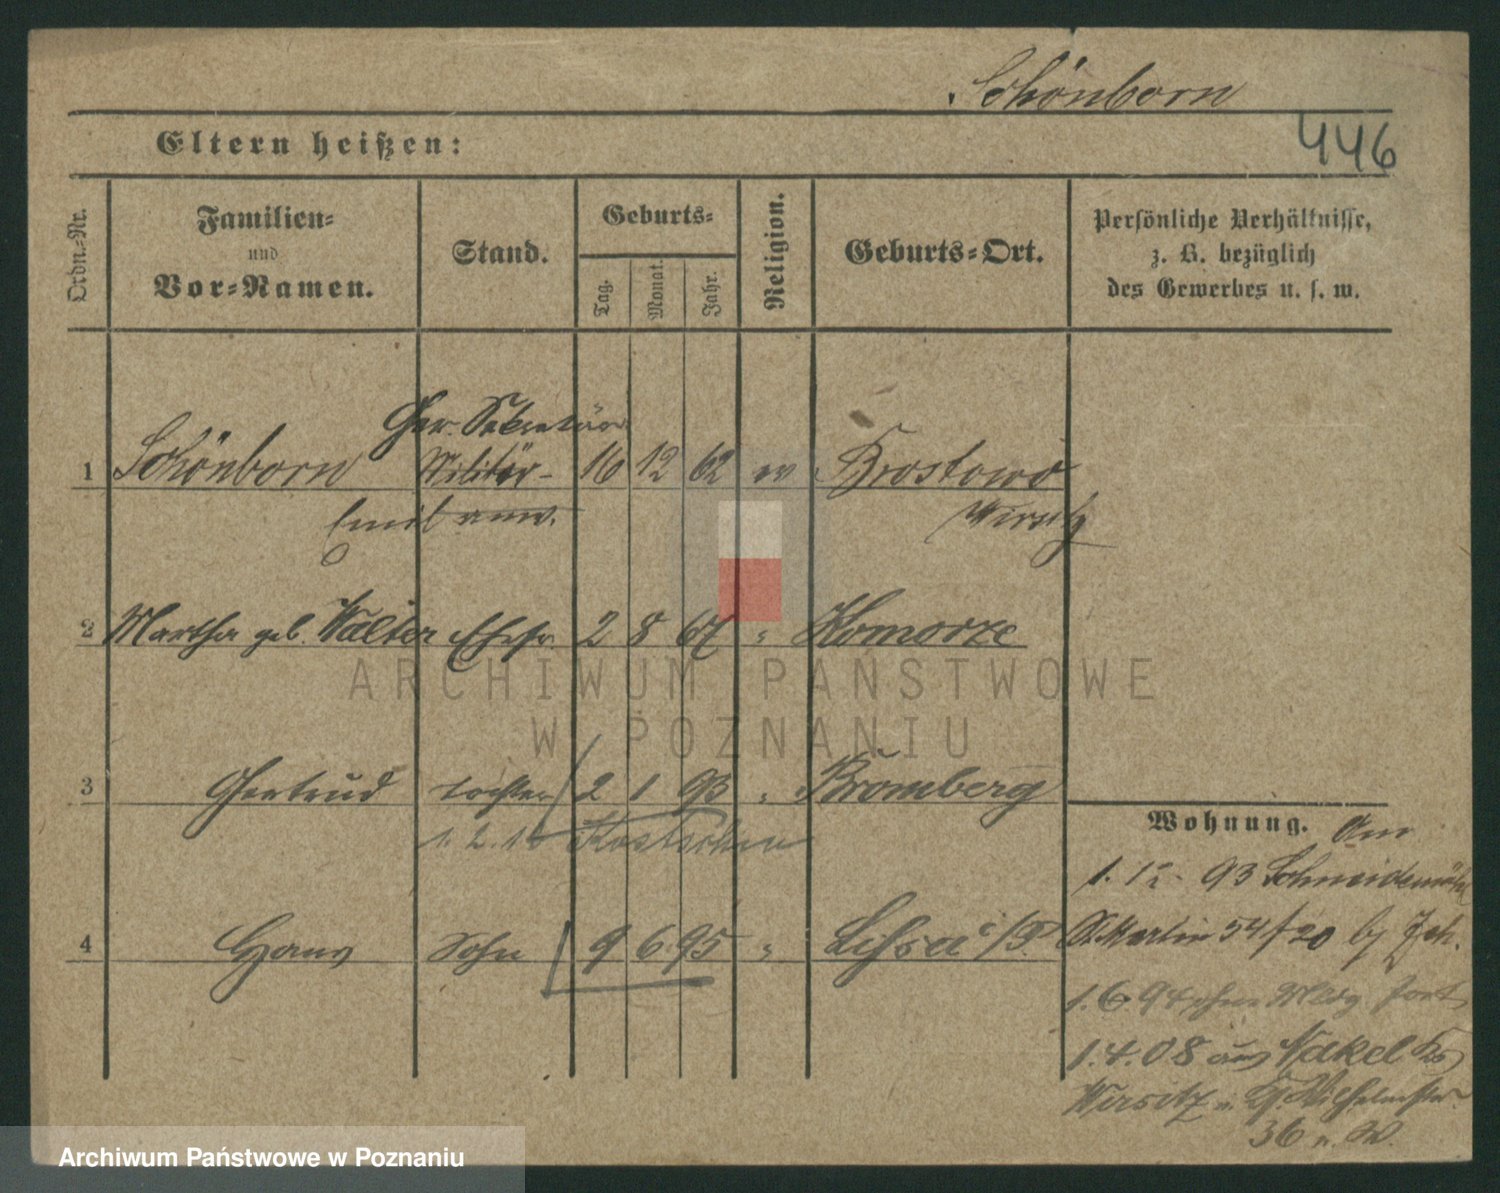 Schönborn
446
Eltern heißen:
Ordn.-Nr.
Familien-
und
Vor-Namen.
Stand.
Geburts-
Tag.
Monat.
Jahr.
Religion.
Geburts-Ort.
Persönliche Verhältnisse,
z. B. bezüglich
des Gewerbes u. s. w.
Ger. Sekretär
1 Schönborn Militär- 16 12 62 ev Brostowo
Emil anw. Wirsitz
2 Martha geb. Walter Ehefr. 2 8 67 " Komorze
3 Gertrud Tochter 2 1 93 " Bromberg
1.2.1
4 Hans Sohn 9 6 95 " Lissa i/P
Wohnung. Am
1. 12. 93 Schneidemühl
St. Martin 54/20 by
1.6.94 ohne Meldg fort
1.4.08 aus Nakel Krs
Wirsitz n. Wilhelmstr.
36 n. W.
ARCHIWUM PAŃSTWOWE
W POZNANIU
Archiwum Państwowe w Poznaniu